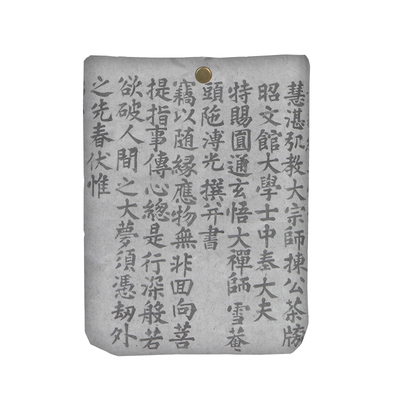 慧湛弘教大宗師揀公茶牓
昭文館大學士中奉大夫
特賜圓通玄悟大禪師雪菴
頭陁溥光撰并書
竊以随縁應物無非回向菩
提指事傳心總是行深般若
欲破人間之大夢須憑劫外
之先春伏惟